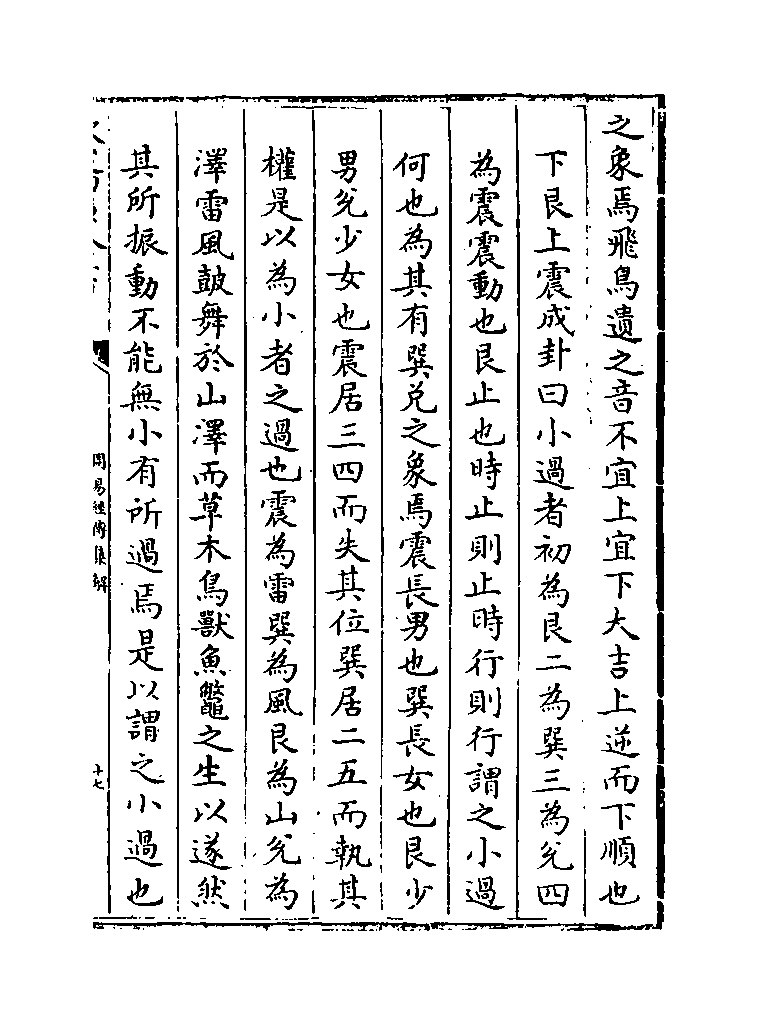 之象焉飛鳥遺之音不宜上宜下大吉上逆而下順也
下艮上震成卦曰小過者初為艮二為巽三為兊四
為震震動也艮止也時止則止時行則行謂之小過
何也為其有巽兊之象焉震長男也巽長女也艮少
男兊少女也震居三四而失其位巽居二五而執其
權是以為小者之過也震為雷巽為風艮為山兊為
澤雷風鼓舞於山澤而草木鳥獸魚鼈之生以遂然
其所振動不能無小有所過焉是以謂之小過也
周易經傳集解
十七